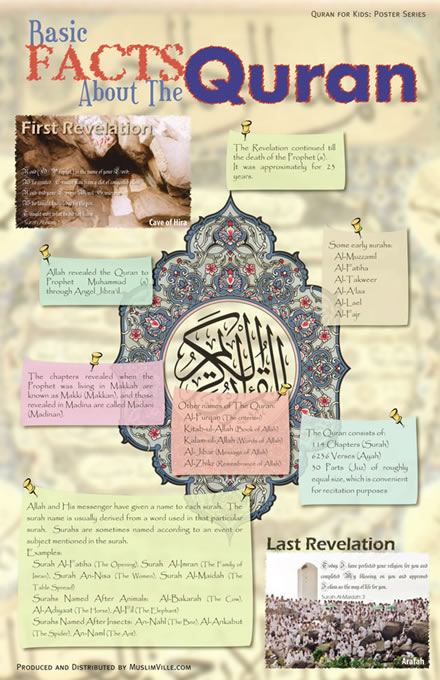 QURAN FOR KIDS: POSTER SERIES
Basic
FACTS
About The
Quran
First Revelation
Cave of Hira
The Revelation continued till
the death of the Prophet (s).
It was approximately for 23
years.
Allah revealed the Quran to
Prophet Muhammad (s)
through Angel Jibra'il.
Some early surahs:
Al-Muzzamil
Al-Fatiha
Al-Takweer
Al-A'laa
Al-Lael
Al-Fajr
القرآن الكريم
The chapters revealed when the
Prophet was living in Makkah are
known as Makki (Makkan), and those
revealed in Madina are called Madani
(Madinan).
Other names of The Quran:
Al-Furqan (The criterion)
Kitab-ul-Allah (Book of Allah)
Kalam-ul-Allah (Words of Allah)
(Message of Allah)
Al-Zhikr (Remembrance of Allah)
The Quran consists of:
114 Chapters (Surah)
6236 Verses (Ayah)
30 Parts (Juz) of roughly
equal size, which is convenient
for recitation purposes
Allah and His messenger have given a name to each surah. The
surah name is usually derived from a word used in that particular
surah. Surahs are sometimes named according to an event or
subject mentioned in the surah.
Examples:
Surah Al-Fatiha (The Opening), Surah Al-Imran (The Family of
Imran), Surah An-Nisa (The Women), Surah Al-Maidah (The
Table Spread)
Surahs Named After Animals: Al-Bakarah (The Cow),
Al-Adiyaat (The Horse), Al-Fil (The Elephant)
Surahs Named After Insects: An-Nahl (The Bee), Al-Ankabut
(The Spider), An-Naml (The Ant).
Last Revelation
Today I have perfected your religion for you and
completed My blessing on you and approved
Islam as the way of life for you.
Surah Al-Maidah:3
Arafah
PRODUCED AND DISTRIBUTED BY MUSLIMVILLE.COM